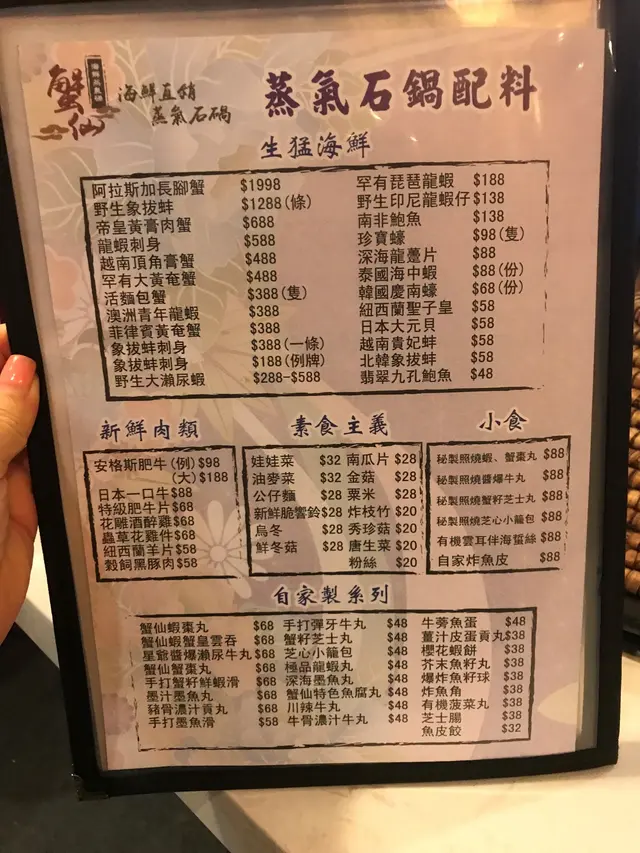 蟹仙
海鮮直銷
蒸氣石鍋
蒸氣石鍋配料
生猛海鮮
阿拉斯加長腳蟹 $1998
野生象拔蚌 $1288(條)
帝皇黃膏肉蟹 $688
龍蝦刺身 $588
越南頂角膏蟹 $488
罕有大黃奄蟹 $488
活麵包蟹 $388(隻)
澳洲青年龍蝦 $388
菲律賓黃奄蟹 $388
象拔蚌刺身 $388(一條)
象拔蚌刺身 $188(例牌)
野生大瀨尿蝦 $288-$588
罕有琵琶龍蝦 $188
野生印尼龍蝦仔 $138
南非鮑魚 $138
珍寶蠔 $98(隻)
深海龍躉片 $88
泰國海中蝦 $88(份)
韓國慶南蠔 $68(份)
紐西蘭聖子皇 $58
日本大元貝 $58
越南貴妃蚌 $58
北韓象拔蚌 $58
翡翠九孔鮑魚 $48
新鮮肉類
安格斯肥牛(例)$98
(大)$188
日本一口牛$88
特級肥牛片$68
花雕酒醉雞$68
蟲草花雞件$68
紐西蘭羊片$58
穀飼黑豚肉$58
素食主義
娃娃菜 $32 南瓜片 $28
油麥菜 $32 金菇 $28
公仔麵 $28 粟米 $28
新鮮脆響鈴$28 炸枝竹 $20
烏冬 $28 秀珍菇 $20
鮮冬菇 $28 唐生菜 $20
粉絲 $20
小食
秘製照燒蝦、蟹棗丸 $88
秘製照燒醬爆牛丸 $88
秘製照燒蟹籽芝士丸 $88
秘製照燒芝心小籠包 $88
有機雲耳伴海蜇絲 $88
自家炸魚皮 $88
自家製系列
蟹仙蝦棗丸 $68 手打彈牙牛丸 $48 牛蒡魚蛋 $48
蟹仙蝦蟹皇雲吞 $68 蟹籽芝士丸 $48 薑汁皮蛋貢丸$38
星爺醬爆瀨尿牛丸$68 芝心小籠包 $48 櫻花蝦餅 $38
蟹仙蟹棗丸 $68 極品龍蝦丸 $48 芥末魚籽丸 $38
手打蟹籽鮮蝦滑 $68 深海墨魚丸 $48 爆炸魚籽球 $38
墨汁墨魚丸 $68 蟹仙特色魚腐丸 $48 炸魚角 $38
豬骨濃汁貢丸 $68 川辣牛丸 $48 有機菠菜丸 $38
手打墨魚滑 $58 牛骨濃汁牛丸 $48 芝士腸 $38
魚皮餃 $32